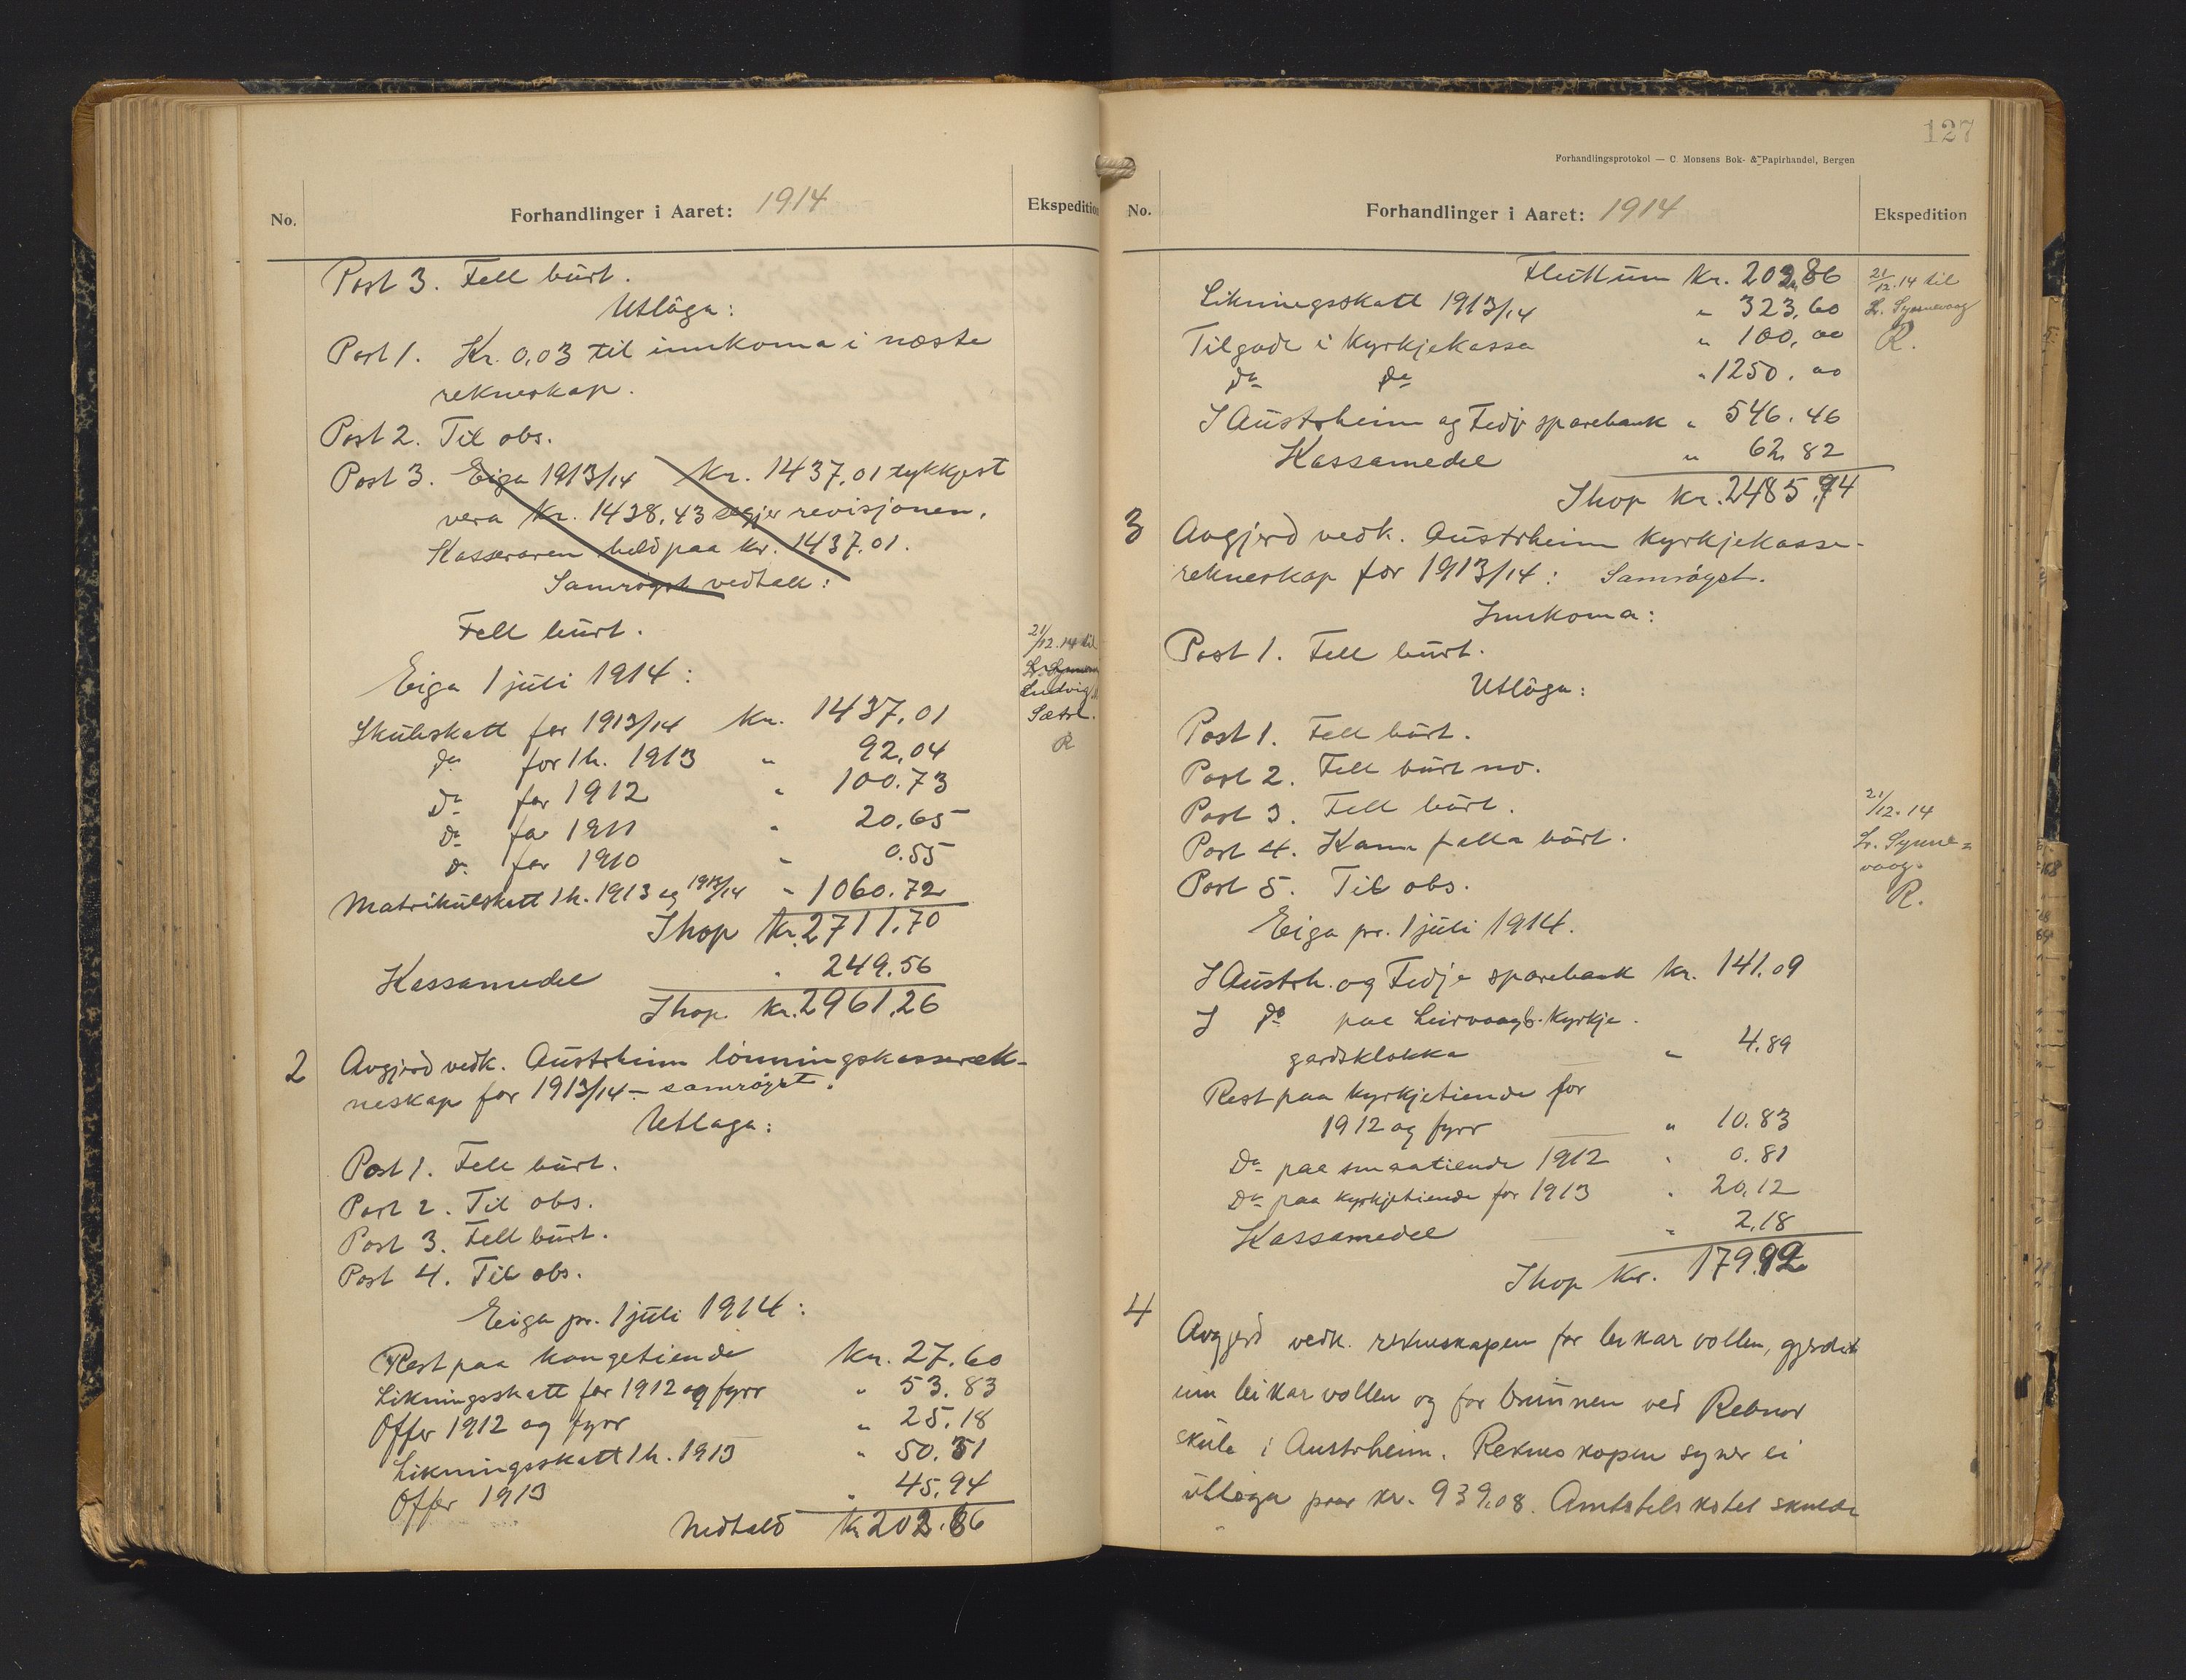 No.
Forhandlinger i Aaret: 1914
Ekspedition
Post 3. Fell burt.
Utlôga:
Post 1. Kr. 0,03 til innkoma i næste
rekneskap.
Post 2. Til obs.
Post 3. Eiga 1913/14 Kr. 1437,01 tykkjest
vera Kr. 1438,43 segjer revisjonen.
Kasseraren held paa kr. 1437.01.
Samrøyst vedtak:
Fell burt.
Eiga 1 juli 1914:
Skuleskatt for 1913/14 Kr. 1437,01
Do for 1h. 1913 " 92,04
Do for 1912 " 100.73
Do for 1911 " 20.65
Do for 1910 " 0.55
Matrikulskatt 1h. 1913 og 1913/14 " 1060.72
Ihop Kr. 2711.70
Kassamedel " 249.56
Ihop Kr. 2961,26
21/12.14 til
Ludvig
Sætre.
R
2 Avgjerd vedk. Austrheim lønningskasserek-
neskap for 1913/14 – samrøyst.
Utlaga:
Post 1. Fell burt.
Post 2. Til obs.
Post 3. Fell burt.
Post 4. Til obs.
Eiga pr. 1 juli 1914:
Rest paa kongetiende Kr. 27.60
Likningsskatt for 1912 og fyrr " 53.83
Offer 1912 og fyrr " 25.18
Likningsskatt 1h. 1913 " 50.31
Offer 1913 " 45.94
Nedtald Kr 202.86
127
Forhandlingsprotokol — C. Monsens Bok- & Papirhandel, Bergen
No.
Forhandlinger i Aaret: 1914
Ekspedition
Fluttum Kr. 202,86
Likningsskatt 1913/14 " 323,60
Tilgode i Kyrkjekassa " 100,00
Do Do " 1250.00
I Austrheim og Fedje sparebank " 546.46
Kassamedel " 62,82
Ihop Kr. 2485,74
21/12.14 til
L. Synnevaag
R.
3 Avgjerd vedk. Austrheim Kyrkjekasse-
rekneskap for 1913/14: Samrøyst.
Innkoma:
Post 1. Fell burt.
Utlôga:
Post 1. Fell burt.
Post 2. Fell burt no.
Post 3. Fell burt.
Post 4. Kann falla burt.
Post 5. Til obs.
21/12.14
L. Synne=
vaag.
R.
Eiga pr. 1 juli 1914.
I Austrh. og Fedje sparebank Kr. 141.09
I Do paa Leirvaag Kyrkje-
gardsklokka " 4.89
Rest paa Kyrkjetiende for
1912 og fyrr " 10.83
Do paa smaatiende 1912 " 0.81
Do paa Kyrkjetiende for 1913 " 20,12
Kassamedel " 2,18
Ihop Kr. 179.92
4 Avgjerd vedk. rekneskapen for leikarvollen, gjerdet
um leikarvollen og for brunnen ved Rebnor
skule i Austrheim. Rekneskapen syner ei
utlaga paa Kr. 939.08. Amtstilskotet skulde